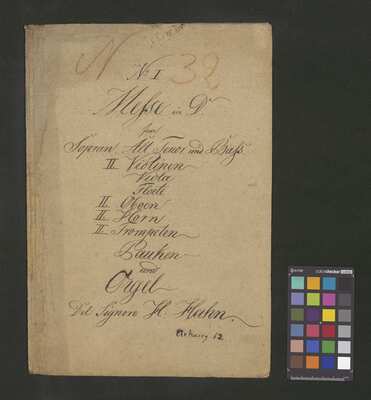 N 32
No I
Messe in D.
für
Sopran, Alt Tenor und Bass
II Violinen
Viola
Floete
II Oboen
II Horn
II Trompeten
Pauken
und
Orgel
Del Signore H.
12
colorchecker